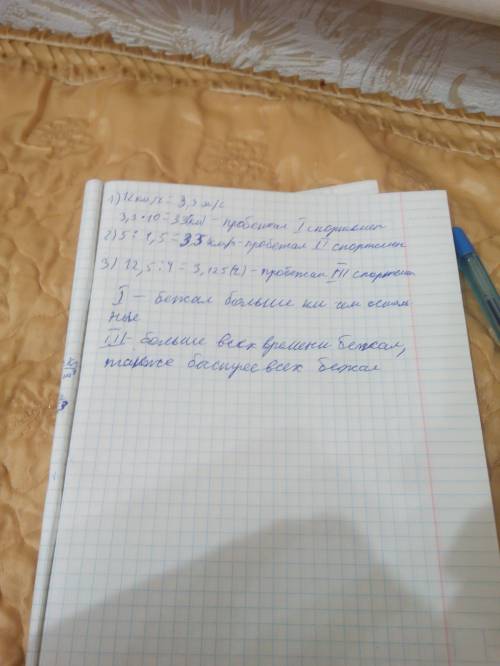 1) 12 км/ч = 3,3 м/с
3,3 • 10 = 33(км) - пробежал I спортсмен
2) 5 : 1,5 = 3.5 км/ч - пробежал II спортсмен
3) 12,5 : 4 = 3,125(ч) - пробежал III спортсмен
I - бежал больше км чем осталь
ные
III - больше всех времени бежал,
также быстрее всех бежал